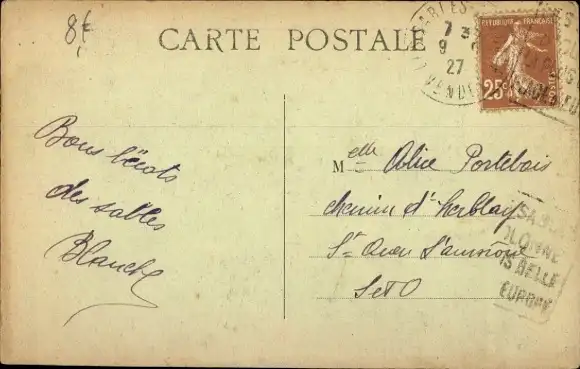 8f
CARTE POSTALE
SABLES
7 3
9
27
VENDÉE
REPUBLIQUE FRANÇAISE
25c
Bons bécots
des sables
Blanche
Melle Alice Portebois
chemin d'herblay
St Ouen L'aumône
S et O
SAB
OLONNE
US BELLE
EUROPE